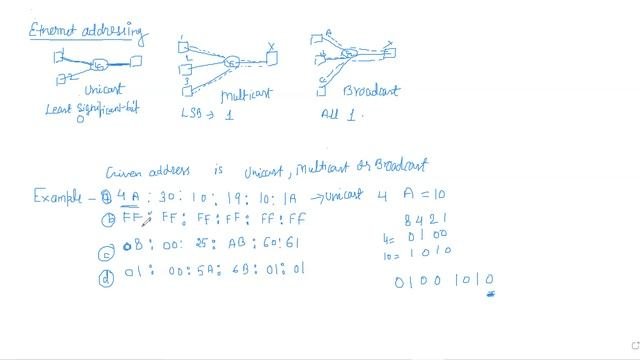 Ethernet addressing
1 2
Unicast
Least Significant-bit
0
1 2 3 X
Multicast
LSB → 1
A C X
Broadcast
All 1.
Given address is Unicast, Multicast or Broadcast
Example - a 4A : 30 : 10 : 19 : 10 : 1A → Unicast 4 A = 10
b FF : FF : FF : FF : FF : FF
c 08 : 00 : 25 : AB : 60 : 61
d 01 : 00 : 5A : 6B : 01 : 01
8 4 2 1
4= 0 1 0 0
10= 1 0 1 0
0 1 0 0 1 0 1 0